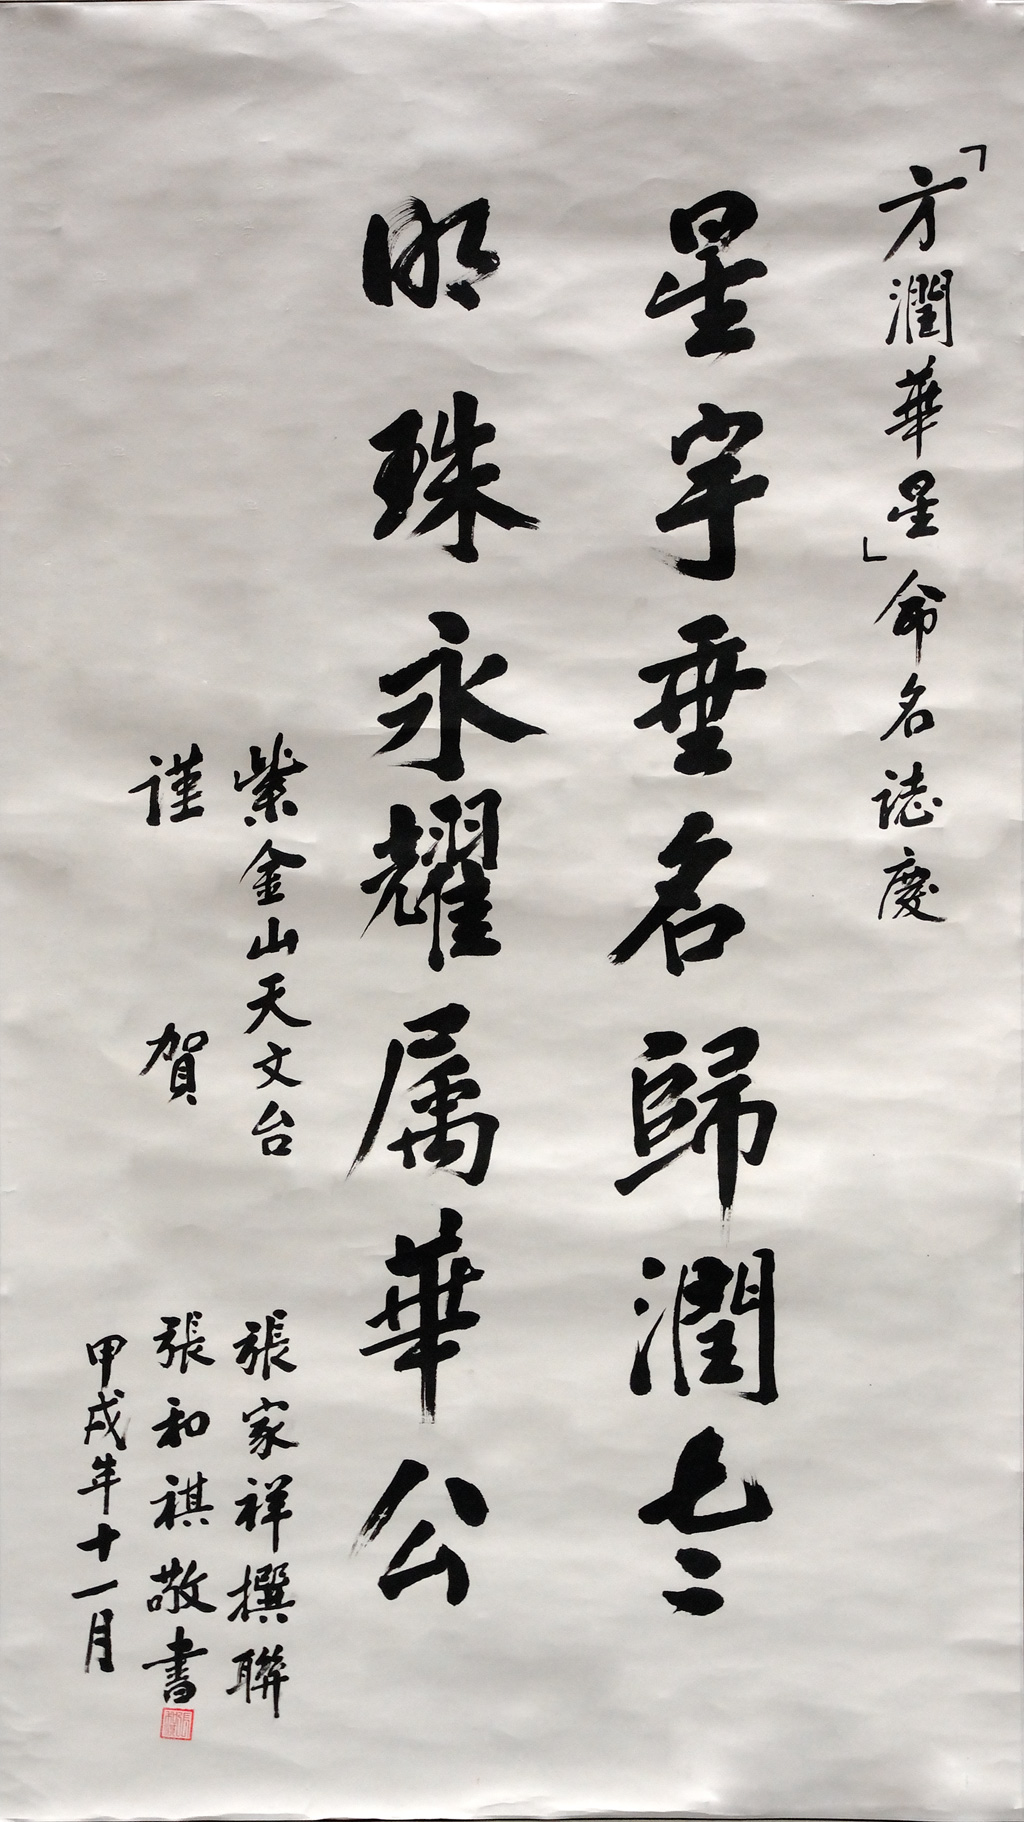 「方潤華星」命名誌慶
星宇垂名歸潤老
明珠永耀属華公
紫金山天文台
謹賀
張家祥撰聯
張和祺敬書
甲戌年十一月